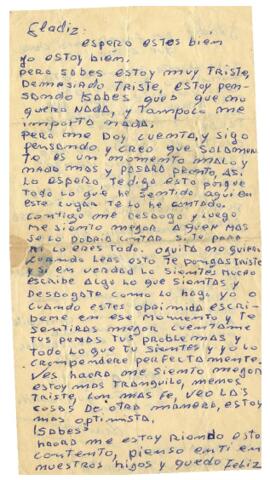 Eladiz:
espero estes bien
yo estoy bien,
pero sabes estoy muy triste,
demasiado triste, estoy pen-
sando ¡sabes que? que no
quero nada, y tampoco me
importa nada;
Pero me doy cuenta, y sigo
pensando y creo que solamen
te es un momento malo y
nada mas y pasara pronto, asi
lo espero, te digo esto porque
todo lo que he sentido aqui en
este lugar te lo he contado.
contigo me desaogo y luego
me siento mejor, a quien mas
se lo podria contar si tu para
mi lo eres todo. no quiero
cuando leas esto te pongas triste
y si en verdad lo sientes mucho
escribe algo lo que sientas y
desaogate como lo hago yo
cuando estes oprimida escri-
beme en ese momento y te
sentiras mejor cuentame
tus penas tus problemas y
todo lo que tu sientes y yo lo
comprendere perfectamente.
Ves haora me siento mejor
estoy mas tranquilo, menos
triste, con mas fe, veo las
cosas de otra manera, estoy
mas optimista.
¡Sabes?
haora me estoy riendo esto
contento, pienso en ti en
nuestros hijos y quedo feliz